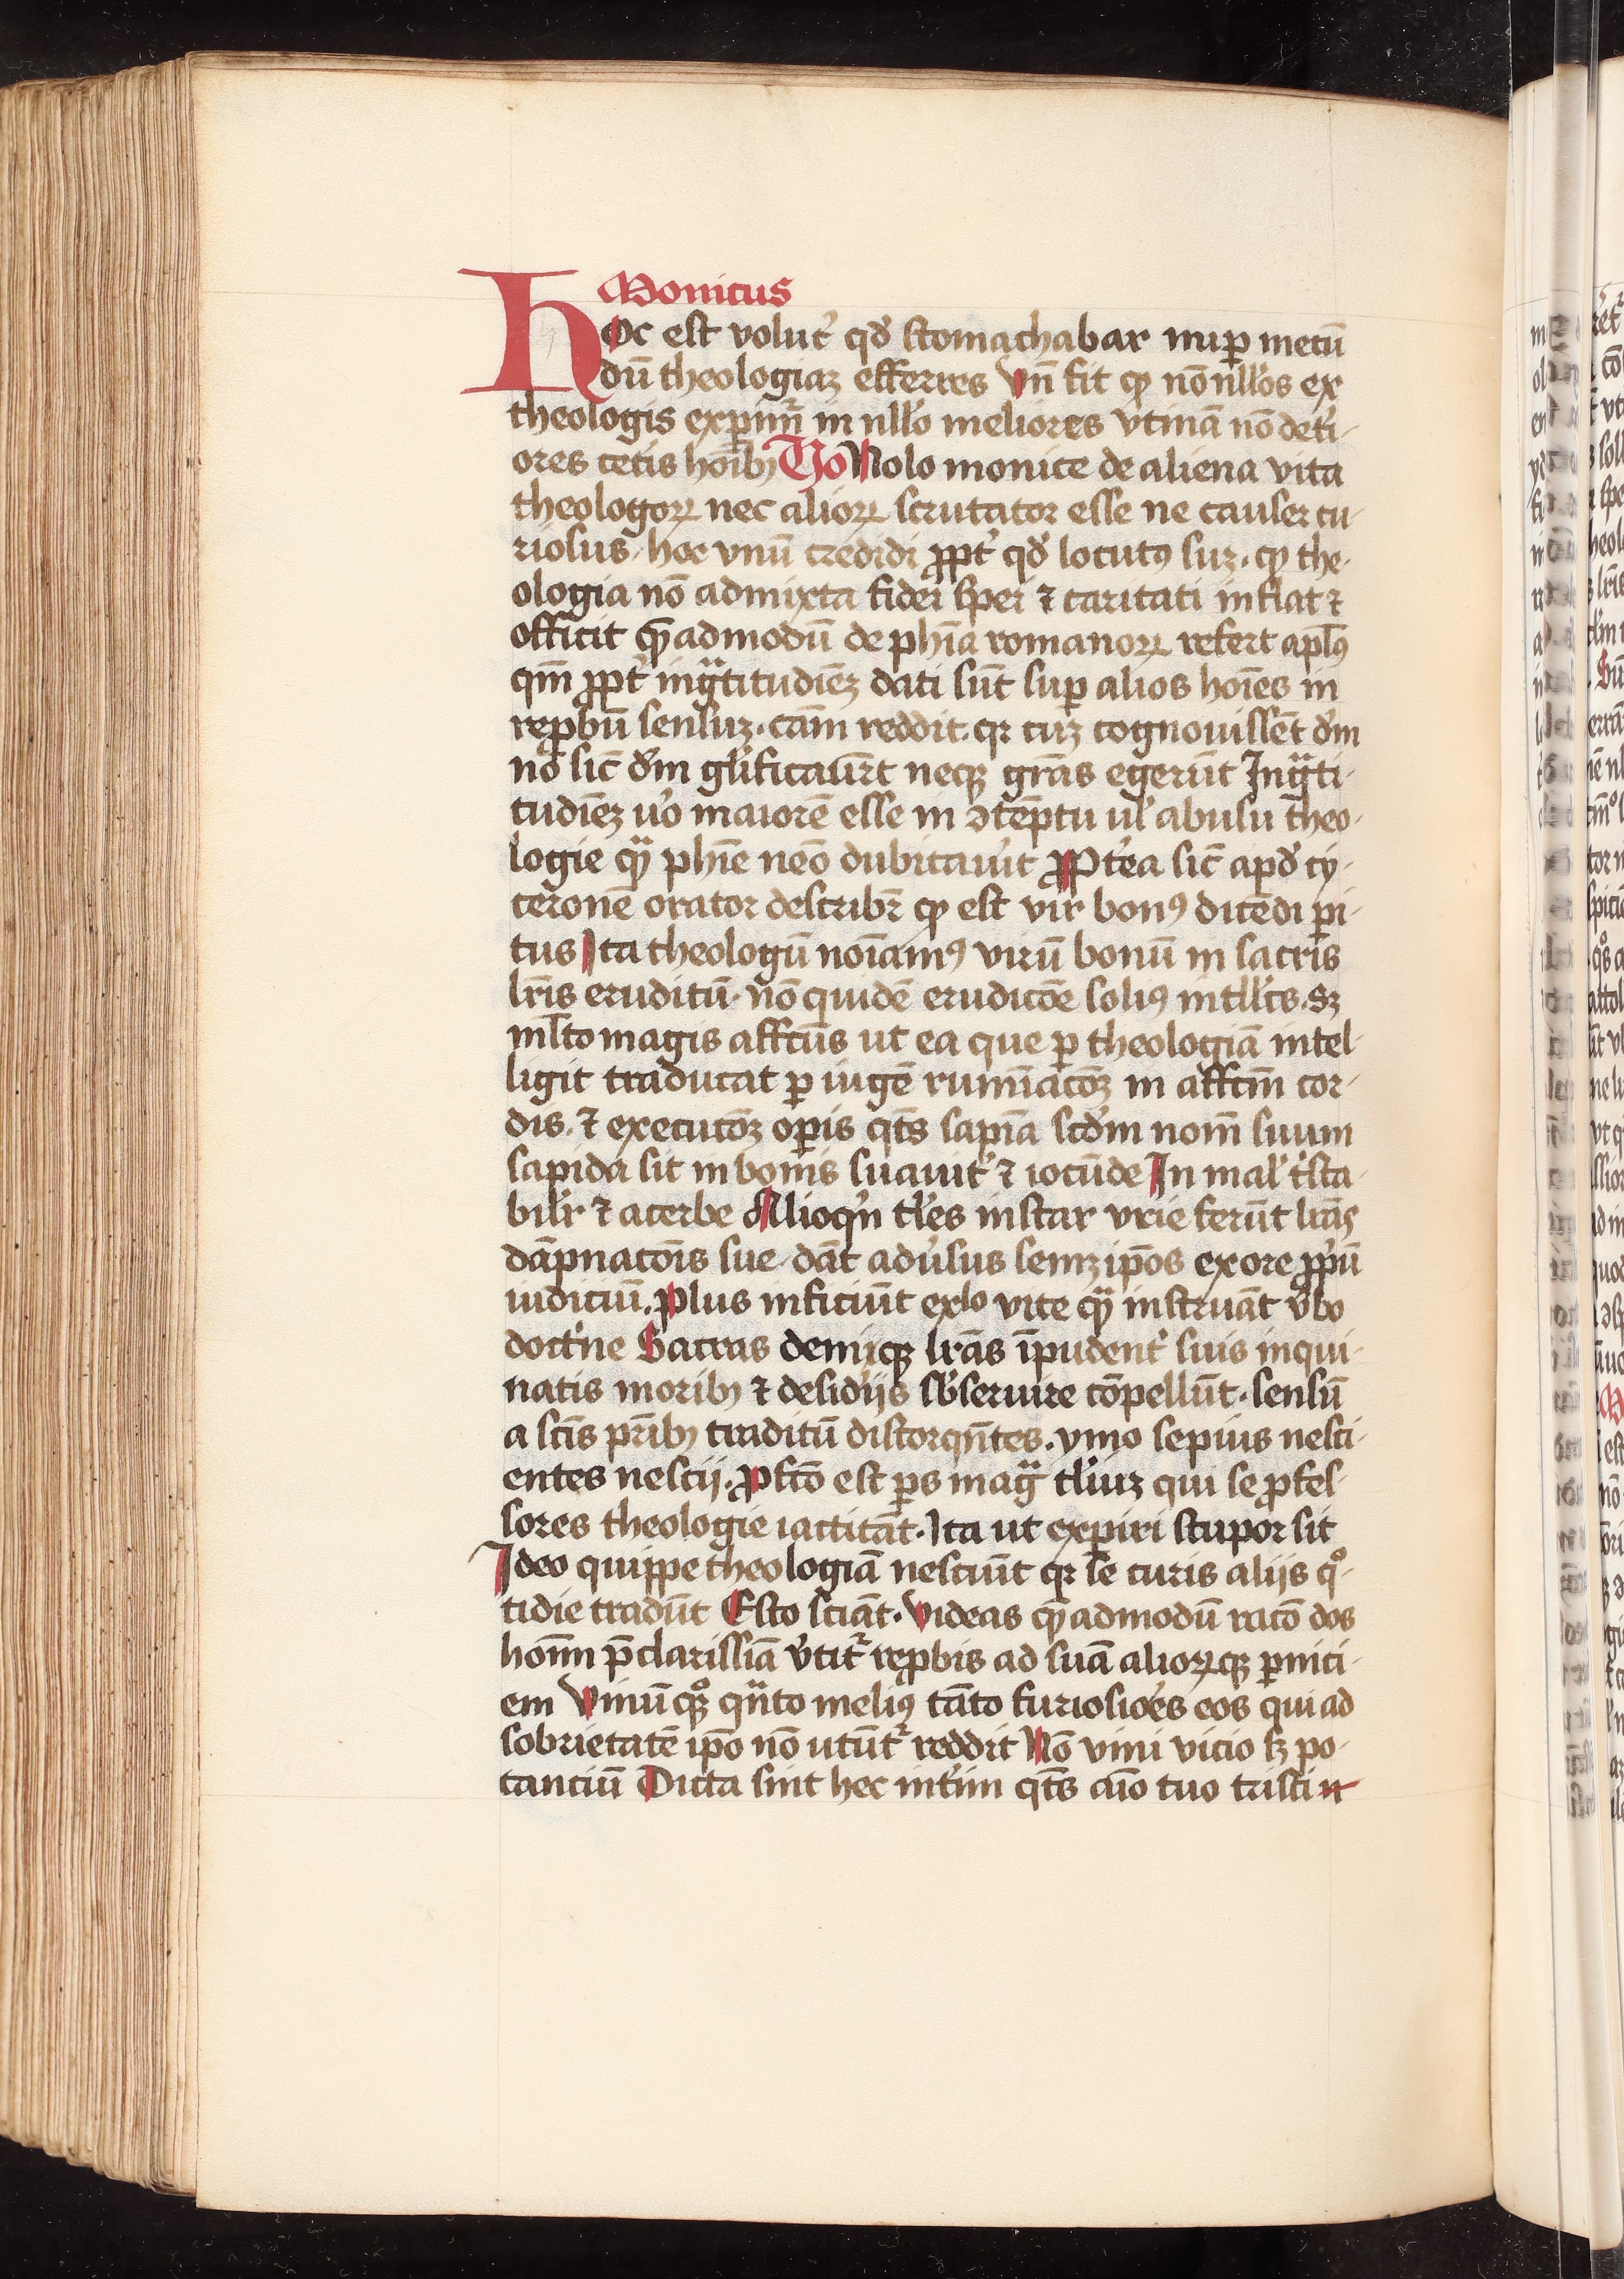 Monicus
Hoc est volut᷑ qd̕ stomachabar nuꝑ metū
dū theologiaꝫ efferres Vn̄ fit ꝙ nōnll̕os ex
theologis expim̄᷑ in nll̕o meliores vtinā nō deti-
ores cetis hoībꝫ Vo Nolo monice de aliena vita
theologoꝝ nec alioꝝ scrutator esse ne causer cu-
riosus hoc vnū credidi ꝓpt̕ qd̕ locutꝰ suꝫ. ꝙ the-
ologia nō admixta fidei spei ⁊ caritati inflat ⁊
officit quēadmodū de ph̄ia romanoꝝ refert apl̄ꝰ
qm̄ ꝓpt̕ ingᷓtitudīeꝫ dati sūt suꝑ alios hoīes in
reꝓbū sensuꝫ. cām reddit. qꝛ cuꝫ cognouissēt d̕m
nō sic̄ d̕m gl̕ificauer̄t neqꝫ grās egerūt Ingᷓti-
tudīeꝫ u̕o maiorē esse in ꝯtēptu ul̕ abusu theo-
logie qᷓ ph̄ie nēo dubitauit ꝓPt̕ea sic̄ apd̕ cy-
ceronē orator describr̄ ꝙ est vir bonꝰ dicēdi ꝑi-
tus Ita theologū noīamꝰ virū bonū in sacris
lr̄is eruditū. nō quidē erudicōe soliꝰ intll̕cs. sꝫ
ml̄to magis affcūs ut ea que ꝑ theologiā intel-
ligit traducat ꝑ iugē ruminacōꝫ in affcm̄ cor-
dis. ⁊ execucōꝫ oꝑis qt̄s sapīa scd̕m nom̄ suum
sapida sit in bonis suauit̕ ⁊ iocūde In mal̕ t̕sta-
bilr̕ ⁊ acerbe Alioqn̕ tl̕es instar vrie ferūt lrās
dāpnacōis sue dāt adu̕sus semꝫip̄os ex ore ꝓp̕ū
iudiciū. Plus inficiūt exl̕o vite qᷓ instruāt v̕bo
doct̕ne Sacras deniqꝫ lrās īpudent̕ suis inqui-
natis moribꝫ ⁊ desid̕ijs sb̕seruire cōpellūt. sensū
a sc̄is pr̄ibꝫ traditū distorqn̄tes. ymo sepius nesci-
entes nescij. Ꝓfcō est ꝑs magᷓ tl̕iuꝫ qui se ꝓfes-
sores theologie iactitāt. Ita ut exꝑiri stupor sit
Ideo quippe theologiā nesciūt qꝛ se curis alijs qͦ-
tidie tradūt Esto sciāt. Videas quēadmodū racō dos
hoīm p̄clarissīā v̕tit᷑ reꝓbis ad suā alioꝝqꝫ ꝑnici-
em Vinū qꝫ qn̄to meliꝰ tāto furiosio̕es eos qui ad
sobrietatē ip̄o nō utūt᷑ reddit Nō vini vicio sꝫ po-
tanciū Dicta sint hec int̕im qt̄s aīo tuo